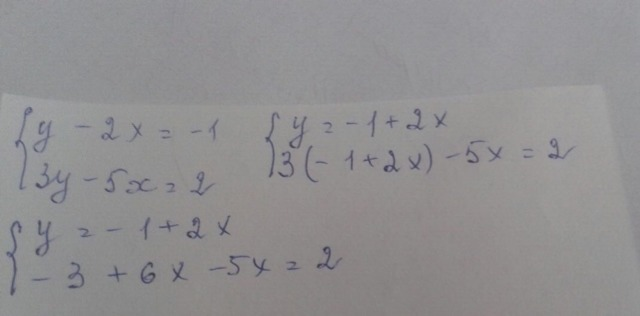 { y - 2x = -1
3y - 5x = 2
{ y = -1 + 2x
3(-1 + 2x) - 5x = 2
{ y = -1 + 2x
-3 + 6x - 5x = 2